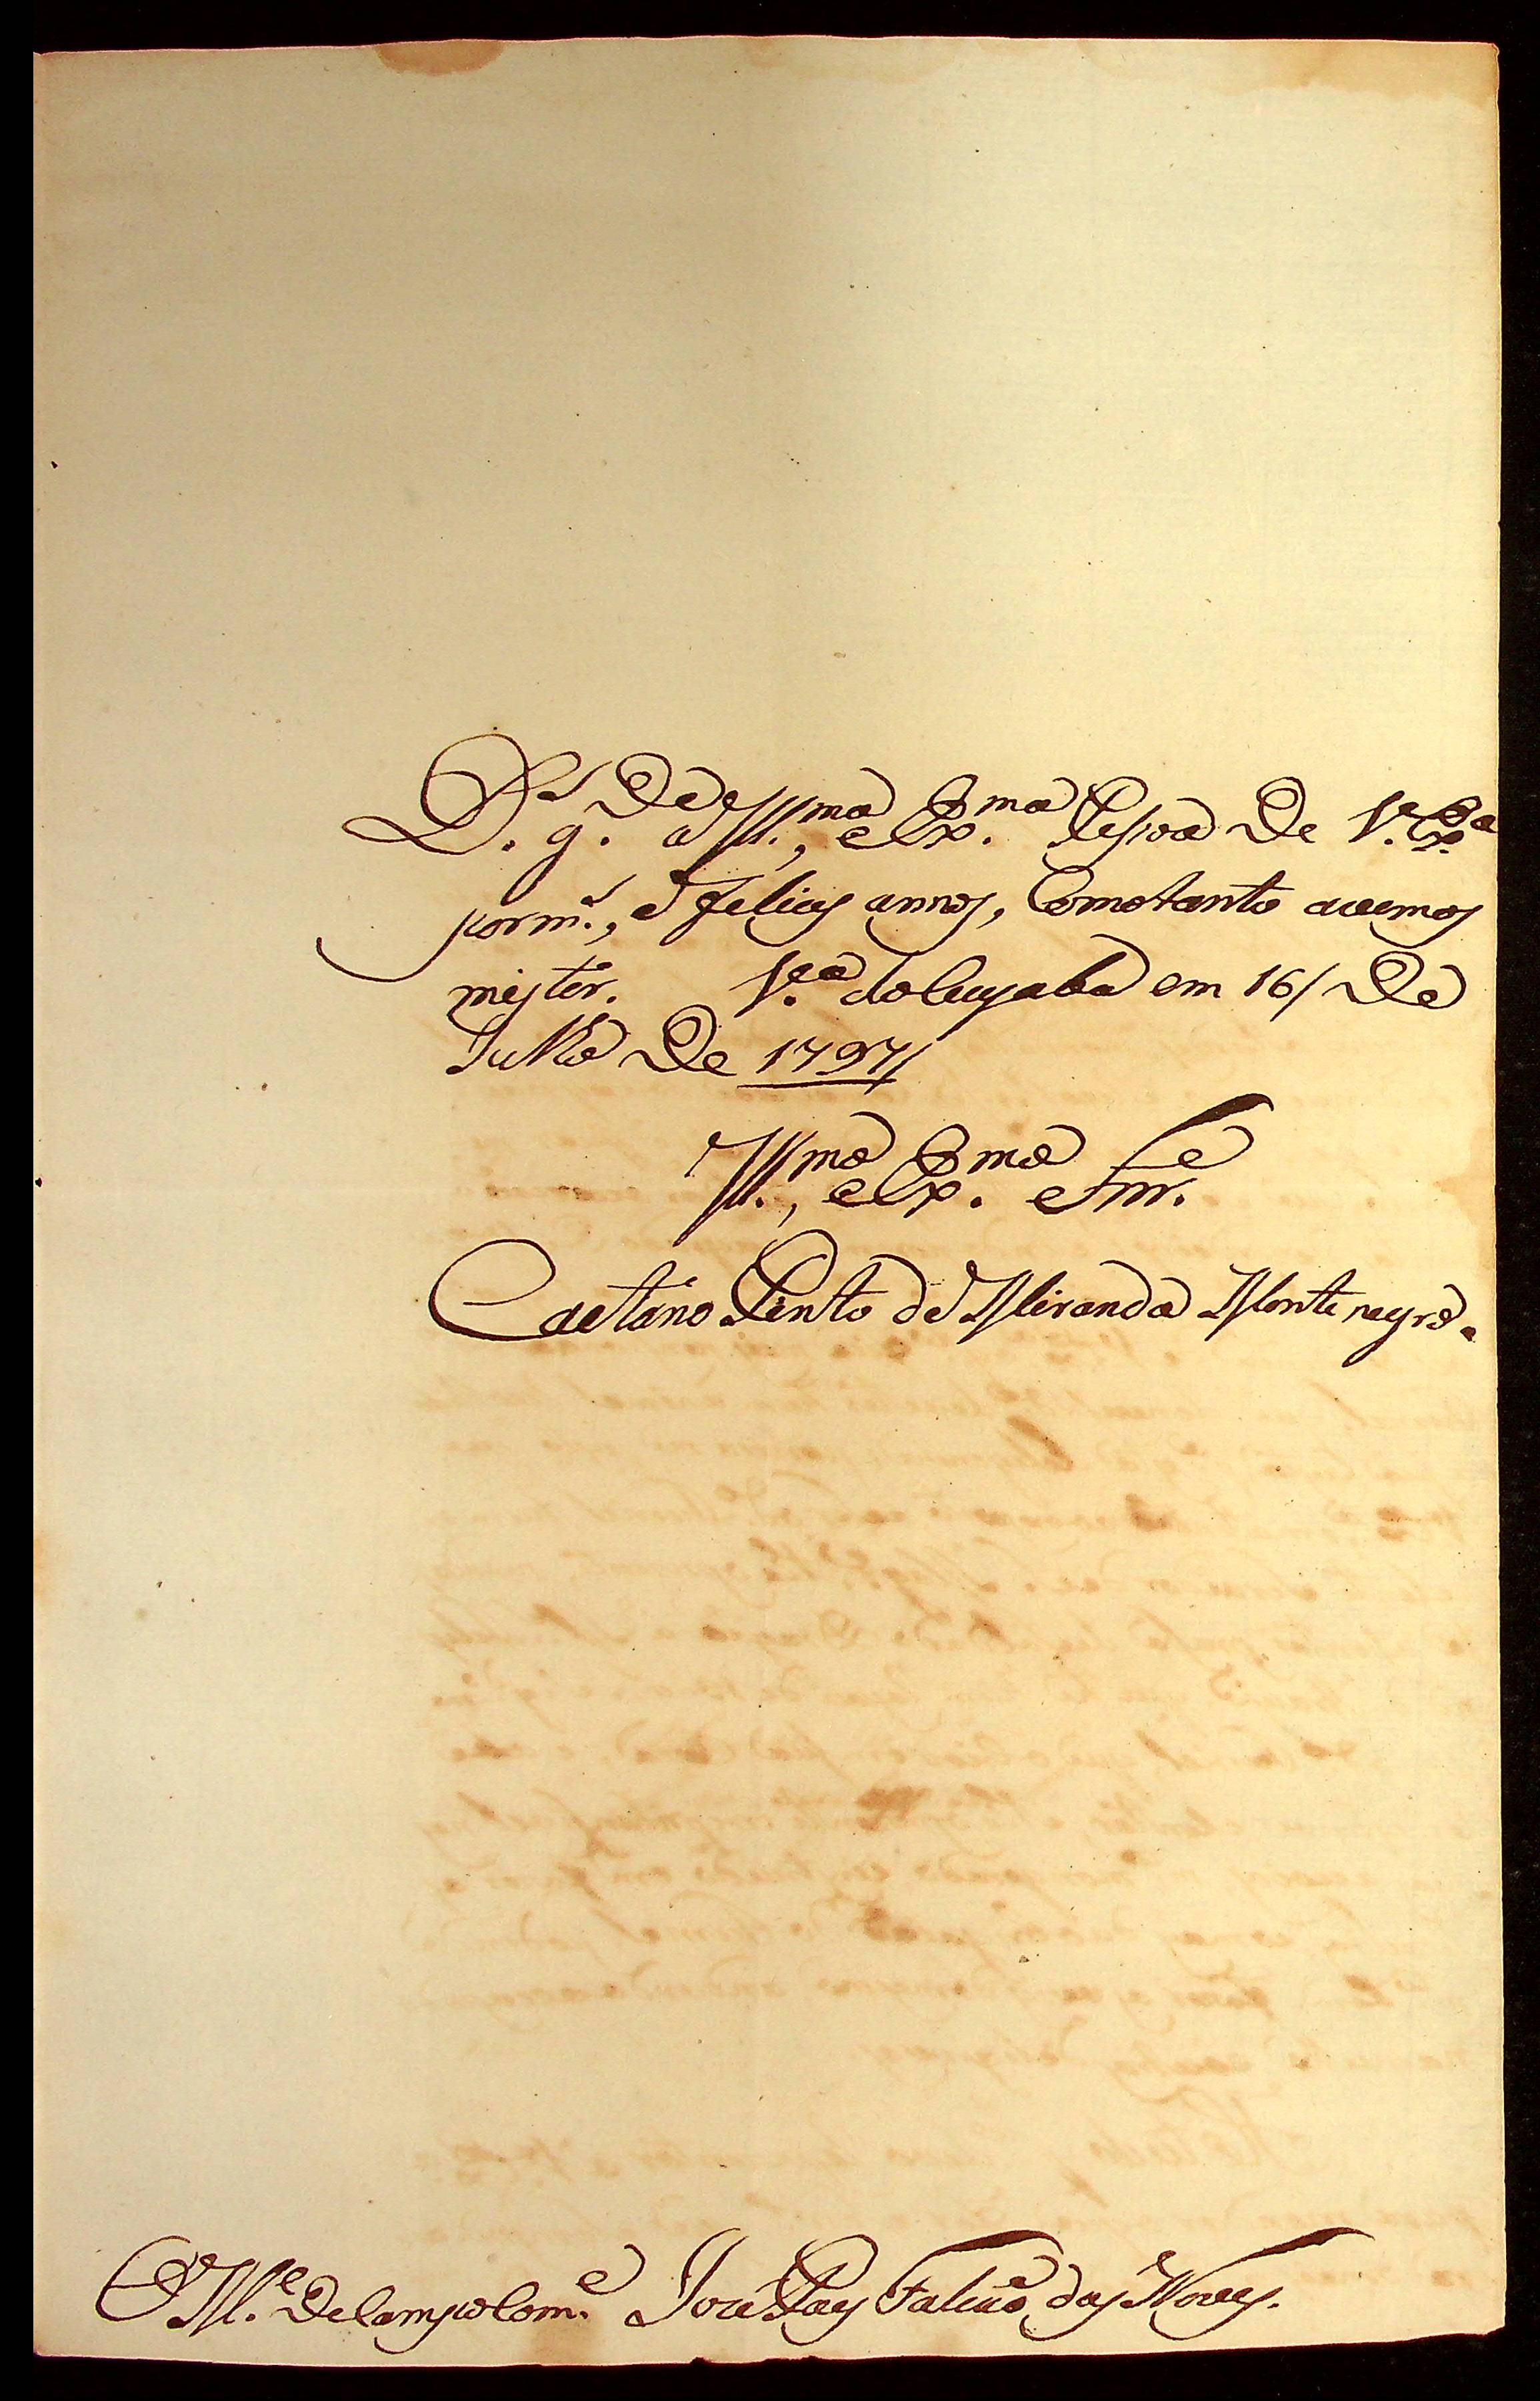 D.s g.de a Ill.ma, e Ex.ma Pesoa de V. Ex.a
por m.s, e felices annos, Como tanto avemos
mister. V.a do Cuyaba em 16/ de
Julho de 1797/
Ill.mo, e Ex.mo Snr.
Caetano Pinto de Miranda Monte negro.
O M.e de Campo Com.e José Paes Falcaõ das Neves.